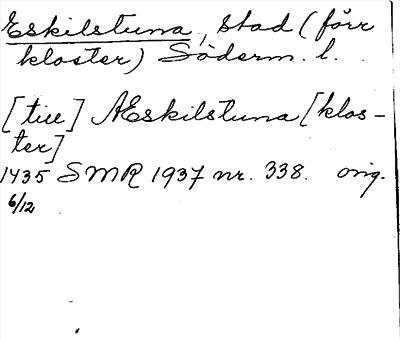 Eskilstuna, stad (förr
kloster) Söderm. l.
[till] Æskilstuna [klos-
ter]
1435 SMR 1937 nr. 338. orig.
6/12